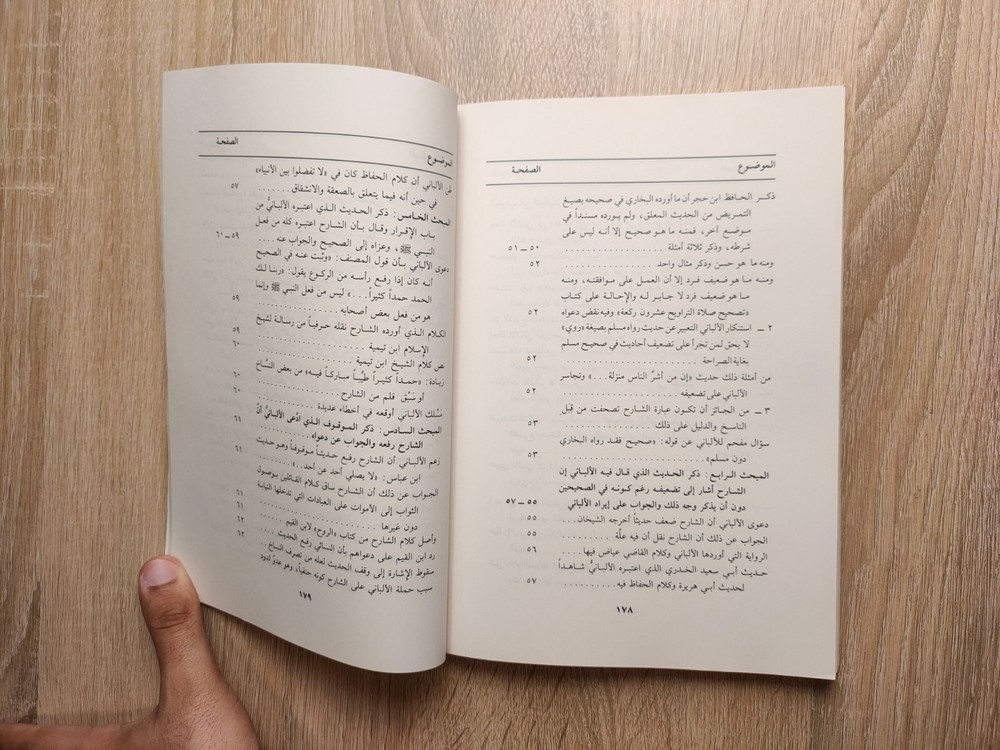 الموضـوع الصفحـة
ذكـر الحافـظ ابن حجر أن ما أورده البخاري في صحيحه بصيـغ
التمـريض من الحديث المعلق، ولم يـورده مسنـداً في
موضـع آخر، فمنـه ما هـو صحيـح إلا أنـه ليس على
شرطه، وذكر ثلاثة أمثلة . . . . . . . . . . . . . . . . ٥٠ ـ ٥١
ومنه ما هو حسن وذكر مثال واحد . . . . . . . . . . . . . . . . ٥٢
ومنـه ما هـو ضعيـف فـرد إلا أن العمـل على مـوافقتـه، ومنـه
ما هـو ضعيف فرد لا جـابـر لـه والإحـالـة على كتـاب
«تصحيح صلاة التراويح عشرون ركعة» وفيه نقض دعواه ٥٢
٢ ـ استنكار الألباني التعبير عن حديث رواه مسلم بصيغة «روي»
لا يحق لمن تجرأ على تضعيف أحاديث في صحيح مسلم
بغاية الصراحة . . . . . . . . . . . . . . . . ٥٢
من أمثلة ذلك حديث «إن من أشرِّ الناس منزلة . . .» وتجاسر
الألباني على تضعيفه . . . . . . . . . . . . . . . . ٥٢
٣ ـ من الجـائـز أن تكـون عبـارة الشـارح تصحفـت مـن قِبَـل
الناسخ والدليل على ذلك . . . . . . . . . . . . . . . . ٥٣
سـؤال مفحـم للألباني عن قوله: «صحيـح فقـد رواه البخاري
دون مسلم» . . . . . . . . . . . . . . . . ٥٣
المبحـث الـرابـع: ذكـر الحديـث الذي قـال فيـه الألبانـي إن
الشـارح أشار إلى تضعيفـه رغـم كـونـه في الصحيحين
دون أن يذكر وجه ذلك والجواب على إيراد الألباني ٥٥ ـ ٥٧
دعوى الألباني أن الشارح ضعف حديثاً أخرجه الشيخان . . . ٥٥
الجواب عن ذلك أن الشارح نقل أن فيه علَّة . . . . . . . . ٥٥
الرواية التي أوردها الألباني وكلام القاضي عياض فيها . . . . ٥٦
حـديـث أبـي سعيد الخـدري الذي اعتبـره الألبانيُّ شـاهـداً
لحديث أبـي هريرة وكلام الحفاظ فيه . . . . . . . . . . ٥٧
١٧٨
الموضـوع الصفحـة
ظن الألباني أن كلام الحفاظ كان في «لا تفضلوا بين الأنبياء»
في حين أنه فيما يتعلق بالصعقة والانشقاق . . . . . . . ٥٧
المبحث الخـامـس: ذكر الحديـث الـذي اعتبـره الألبـانيُّ مـن
بـاب الإقـرار وقـال بـأن الشـارح اعتبـره كله من فعـل
النبـي ﷺ، وعزاه إلى الصحيح والجواب عنه . . . . ٥٩ ـ ٦٠
دعوى الألباني بـأن قول المصنف: «وثبت عنه في الصحيح
أنـه كان إذا رفـع رأسـه من الركـوع يقول: «ربنـا لـك
الحمد حمداً كثيراً . . .» ليس من فعل النبي ﷺ وإنما
هو من فعل بعض أصحابه . . . . . . . . . . . . . . . . ٥٩
الكـلام الـذي أورده الشـارح نقلـه حـرفيـاً من رسـالـة لشيخ
الإسلام ابن تيمية . . . . . . . . . . . . . . . . ٥٩
نص كلام الشيخ ابن تيمية . . . . . . . . . . . . . . . . ٦٠
زيـادة: «حمـداً كثيـراً طيِّبـاً مبـاركـاً فيـه» من بعض النسَّاخ
أو سَبْق قلم من الشارح . . . . . . . . . . . . . . . . ٦٠
مَسْلك الألباني أوقعه في أخطاء عديدة . . . . . . . . . . ٦٠
المبحث السـادس: ذكر المـوقـوف الـذي ادَّعى الألبانيُّ أنَّ
الشارح رفعه والجواب عن دعواه . . . . . . . . . . ٦١
زعم الألبانـي أن الشارح رفـع حـديثـاً مـوقـوفـاً وهـو حـديث
ابن عباس: «لا يصلي أحد عن أحد . . .» . . . . . . . ٦١
الجـواب عن ذلك أن الشارح سـاق كـلام القـائليـن بـوصـول
الثواب إلى الأموات على العبادات التي تدخلها النيابة
دون غيرها . . . . . . . . . . . . . . . . ٦١
وأصل كلام الشارح من كتاب «الروح» لابن القيم . . . . . ٦١
رد ابن القيم على دعواهم بأن النسائي رفع الحديث . . . . ٦٢
سقوط الإشارة إلى وقف الحديث لعله من تصرف النساخ . . ٦٢
سبب حملة الألباني على الشارح كونه حنفياً، وهو عدوٌّ لدود
١٧٩